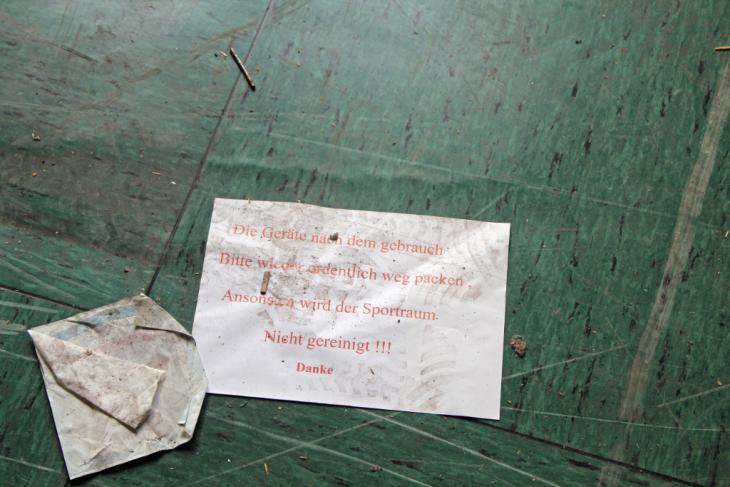 Die Geräte nach dem gebrauch
Bitte wieder ordentlich weg packen ,
Ansonsten wird der Sportraum.
Nicht gereinigt !!!
Danke